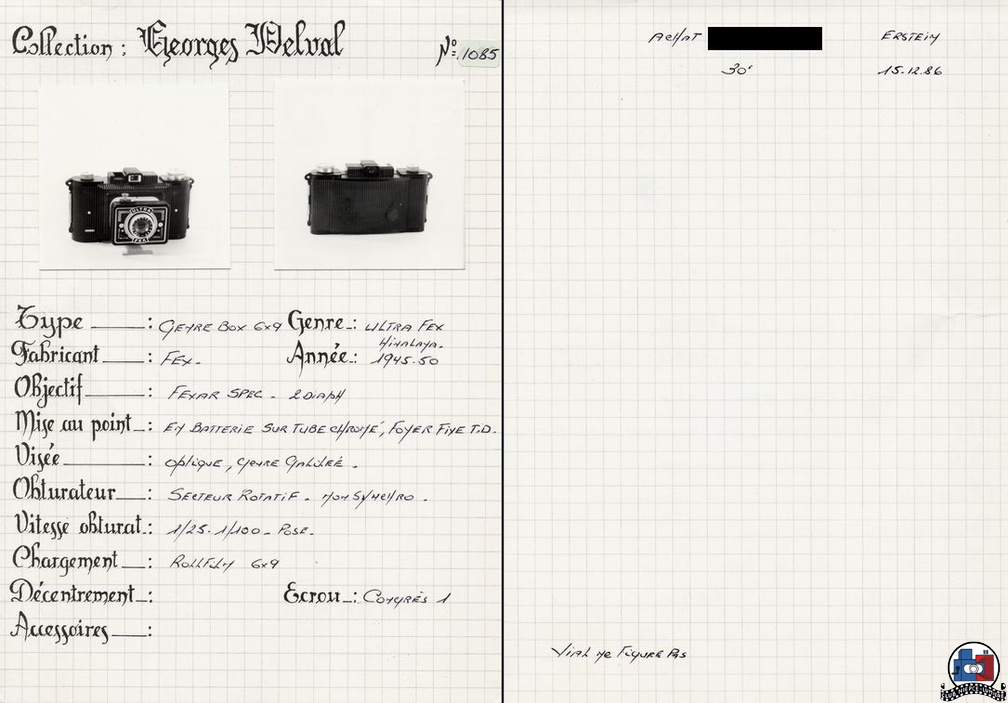 Collection : Georges Delval
N° 1085
Type : GENRE BOX 6x9 Genre : ULTRA FEX
HIMALAYA.
Fabricant : FEX. Année : 1945.50
Objectif : FEXAR SPEC. 2 DIAPH
Mise au point : EN BATTERIE SUR TUBE CHROMÉ, FOYER FIXE T.D.
Visée : OPTIQUE, GENRE GALILÉE.
Obturateur : SECTEUR ROTATIF. NON SYNCHRO.
Vitesse obturat. : 1/25. 1/100. POSE.
Chargement : ROLLFILM 6x9
Décentrement : Ecrou : CONGRÈS 1
Accessoires :
ACHAT ERSTEIN
30' 15.12.86
VIAL NE FIGURE PAS
ULTRA
FEX